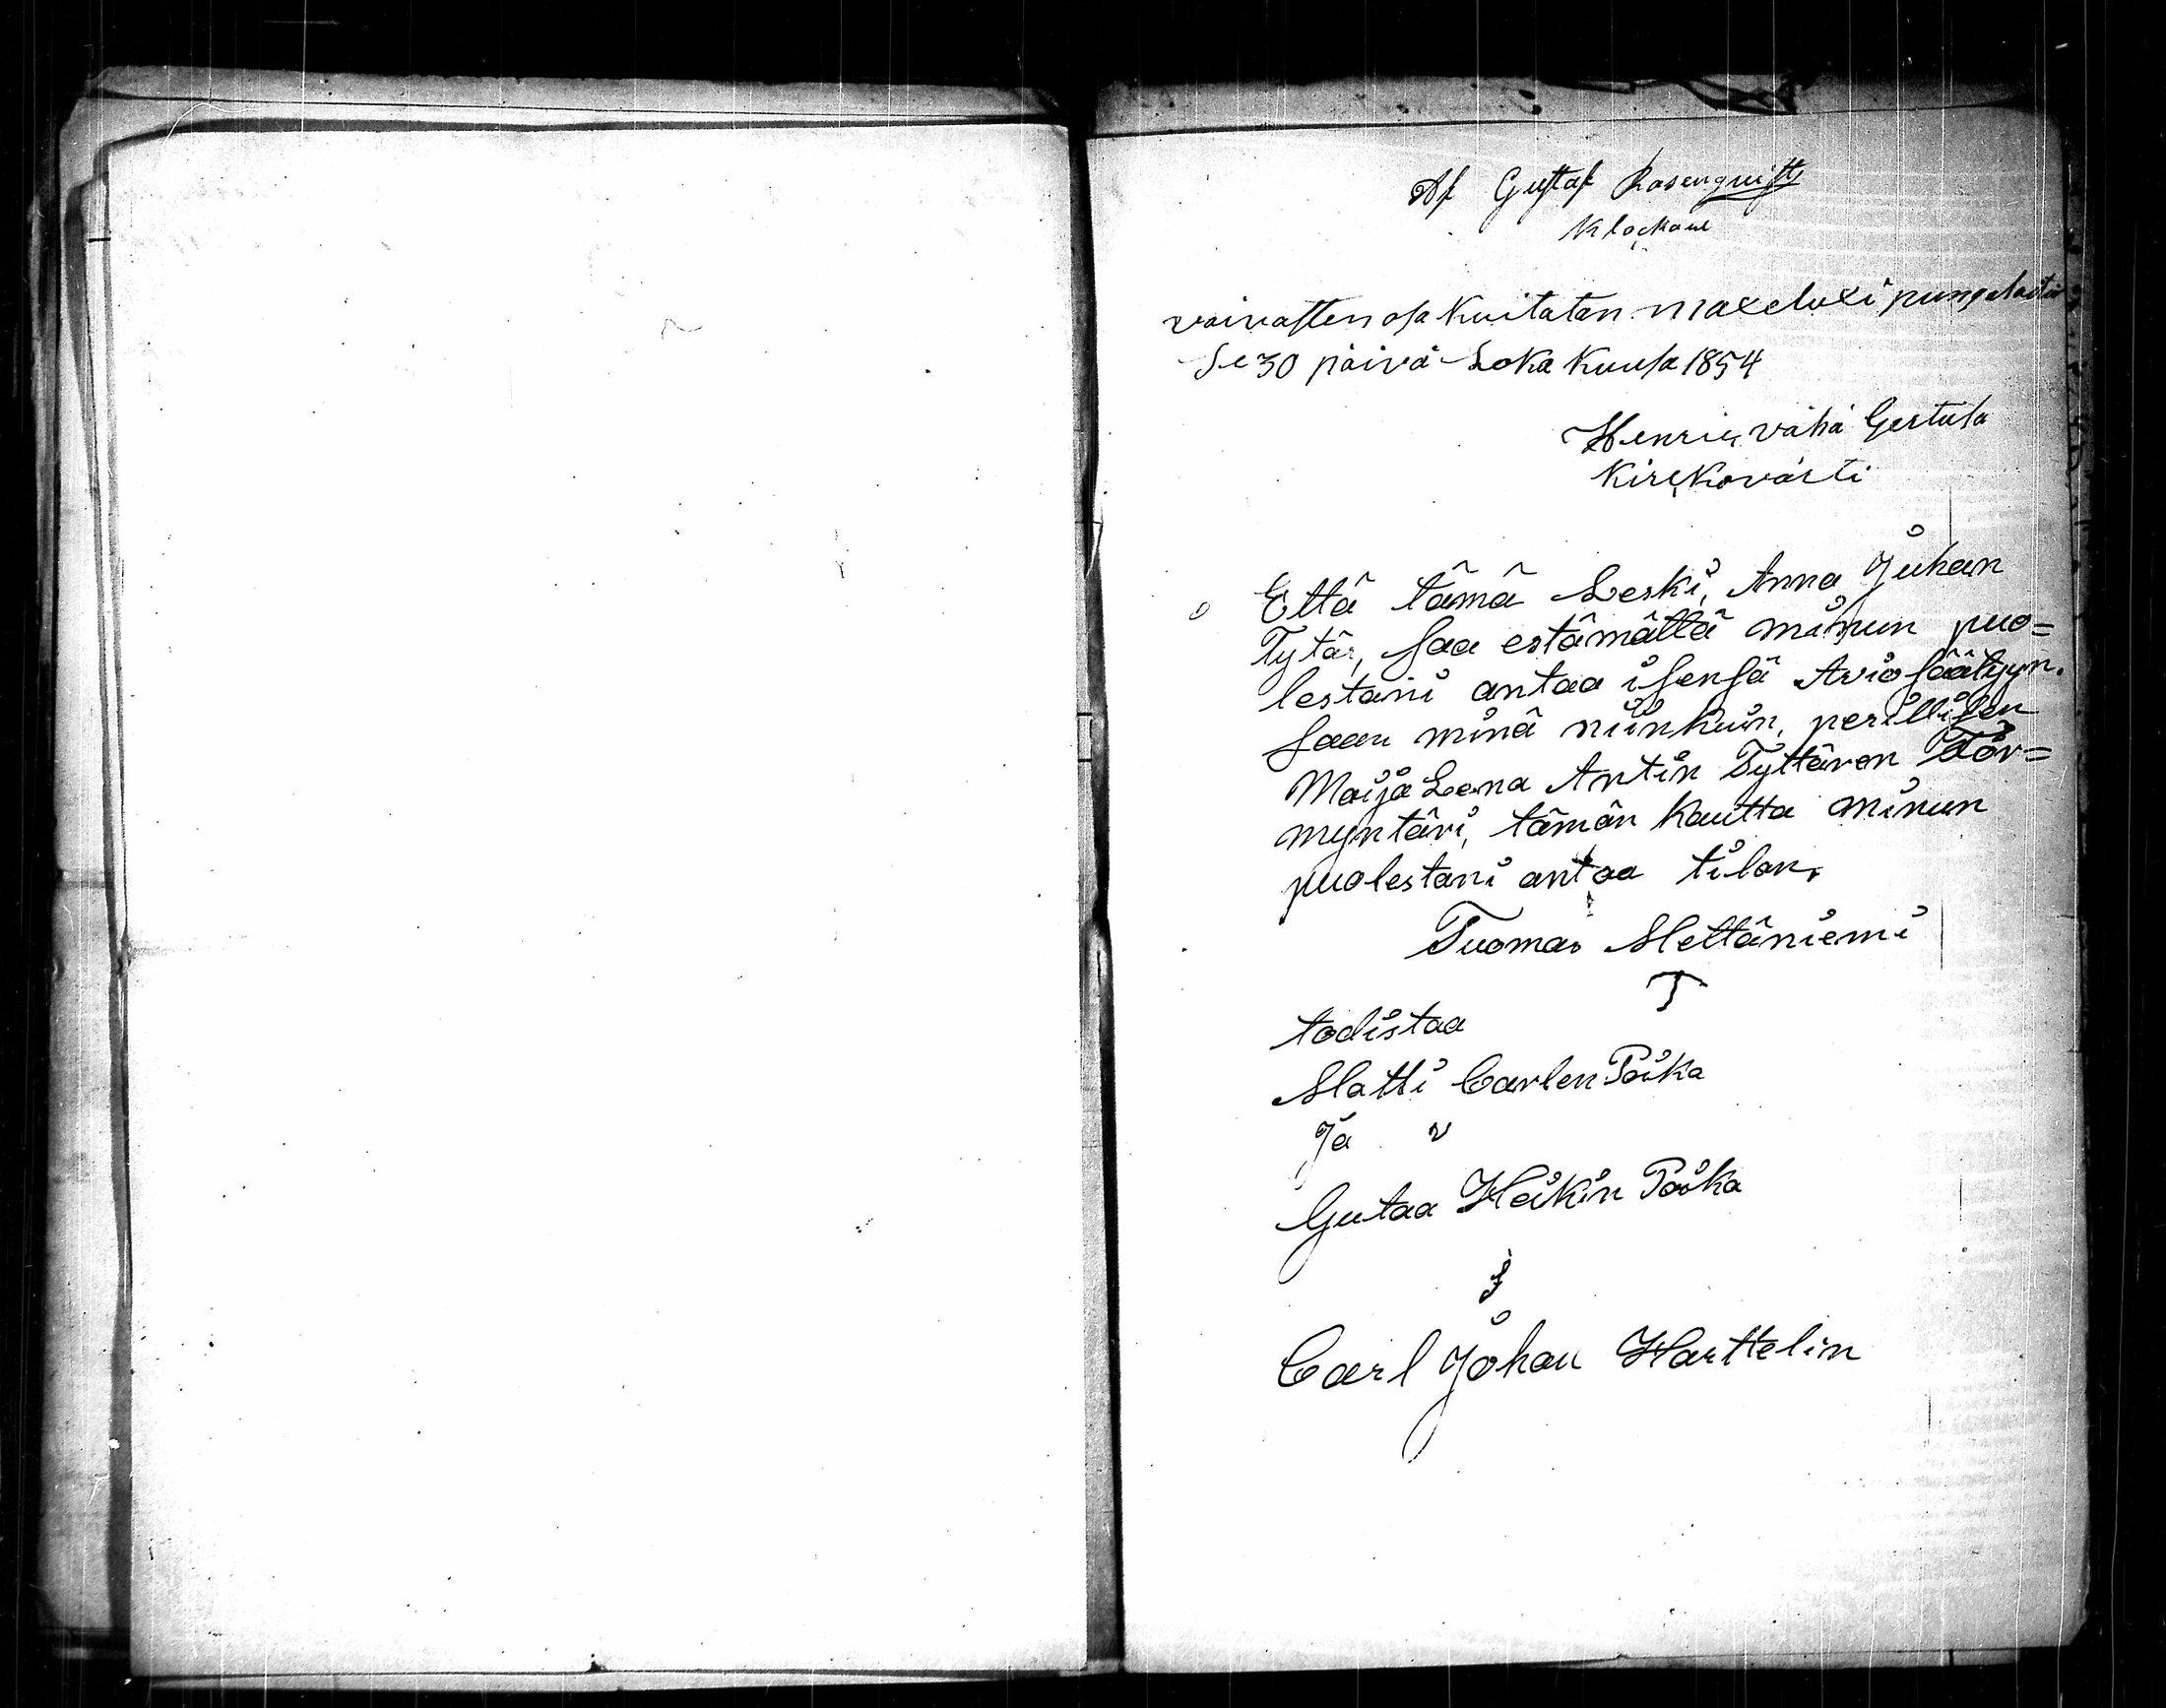 Af Gustaf Rosenquist
Klockare
vaivasten osa Kuitatan maxeluxi pungalaitio
Se 30 päivä Loka Kuusa 1854
Henric vähä Gertula
Kirckovärti
Että tämä Leski, Anna Juhan
Tytär, saa estämättä minun puo=
lestani antaa isensä Avio säätyyn.
saan minä niinkuin, perillisen
Maija Leena Antin Tyttären För=
myntäri, tämän kautta minun
puolestani antaa tilan,
Tuomas Mettäniemi
T
todistaa
Matti Carlen Poika
Ja v
Gustaa Heikin Poika
Carl Johan Harttelin